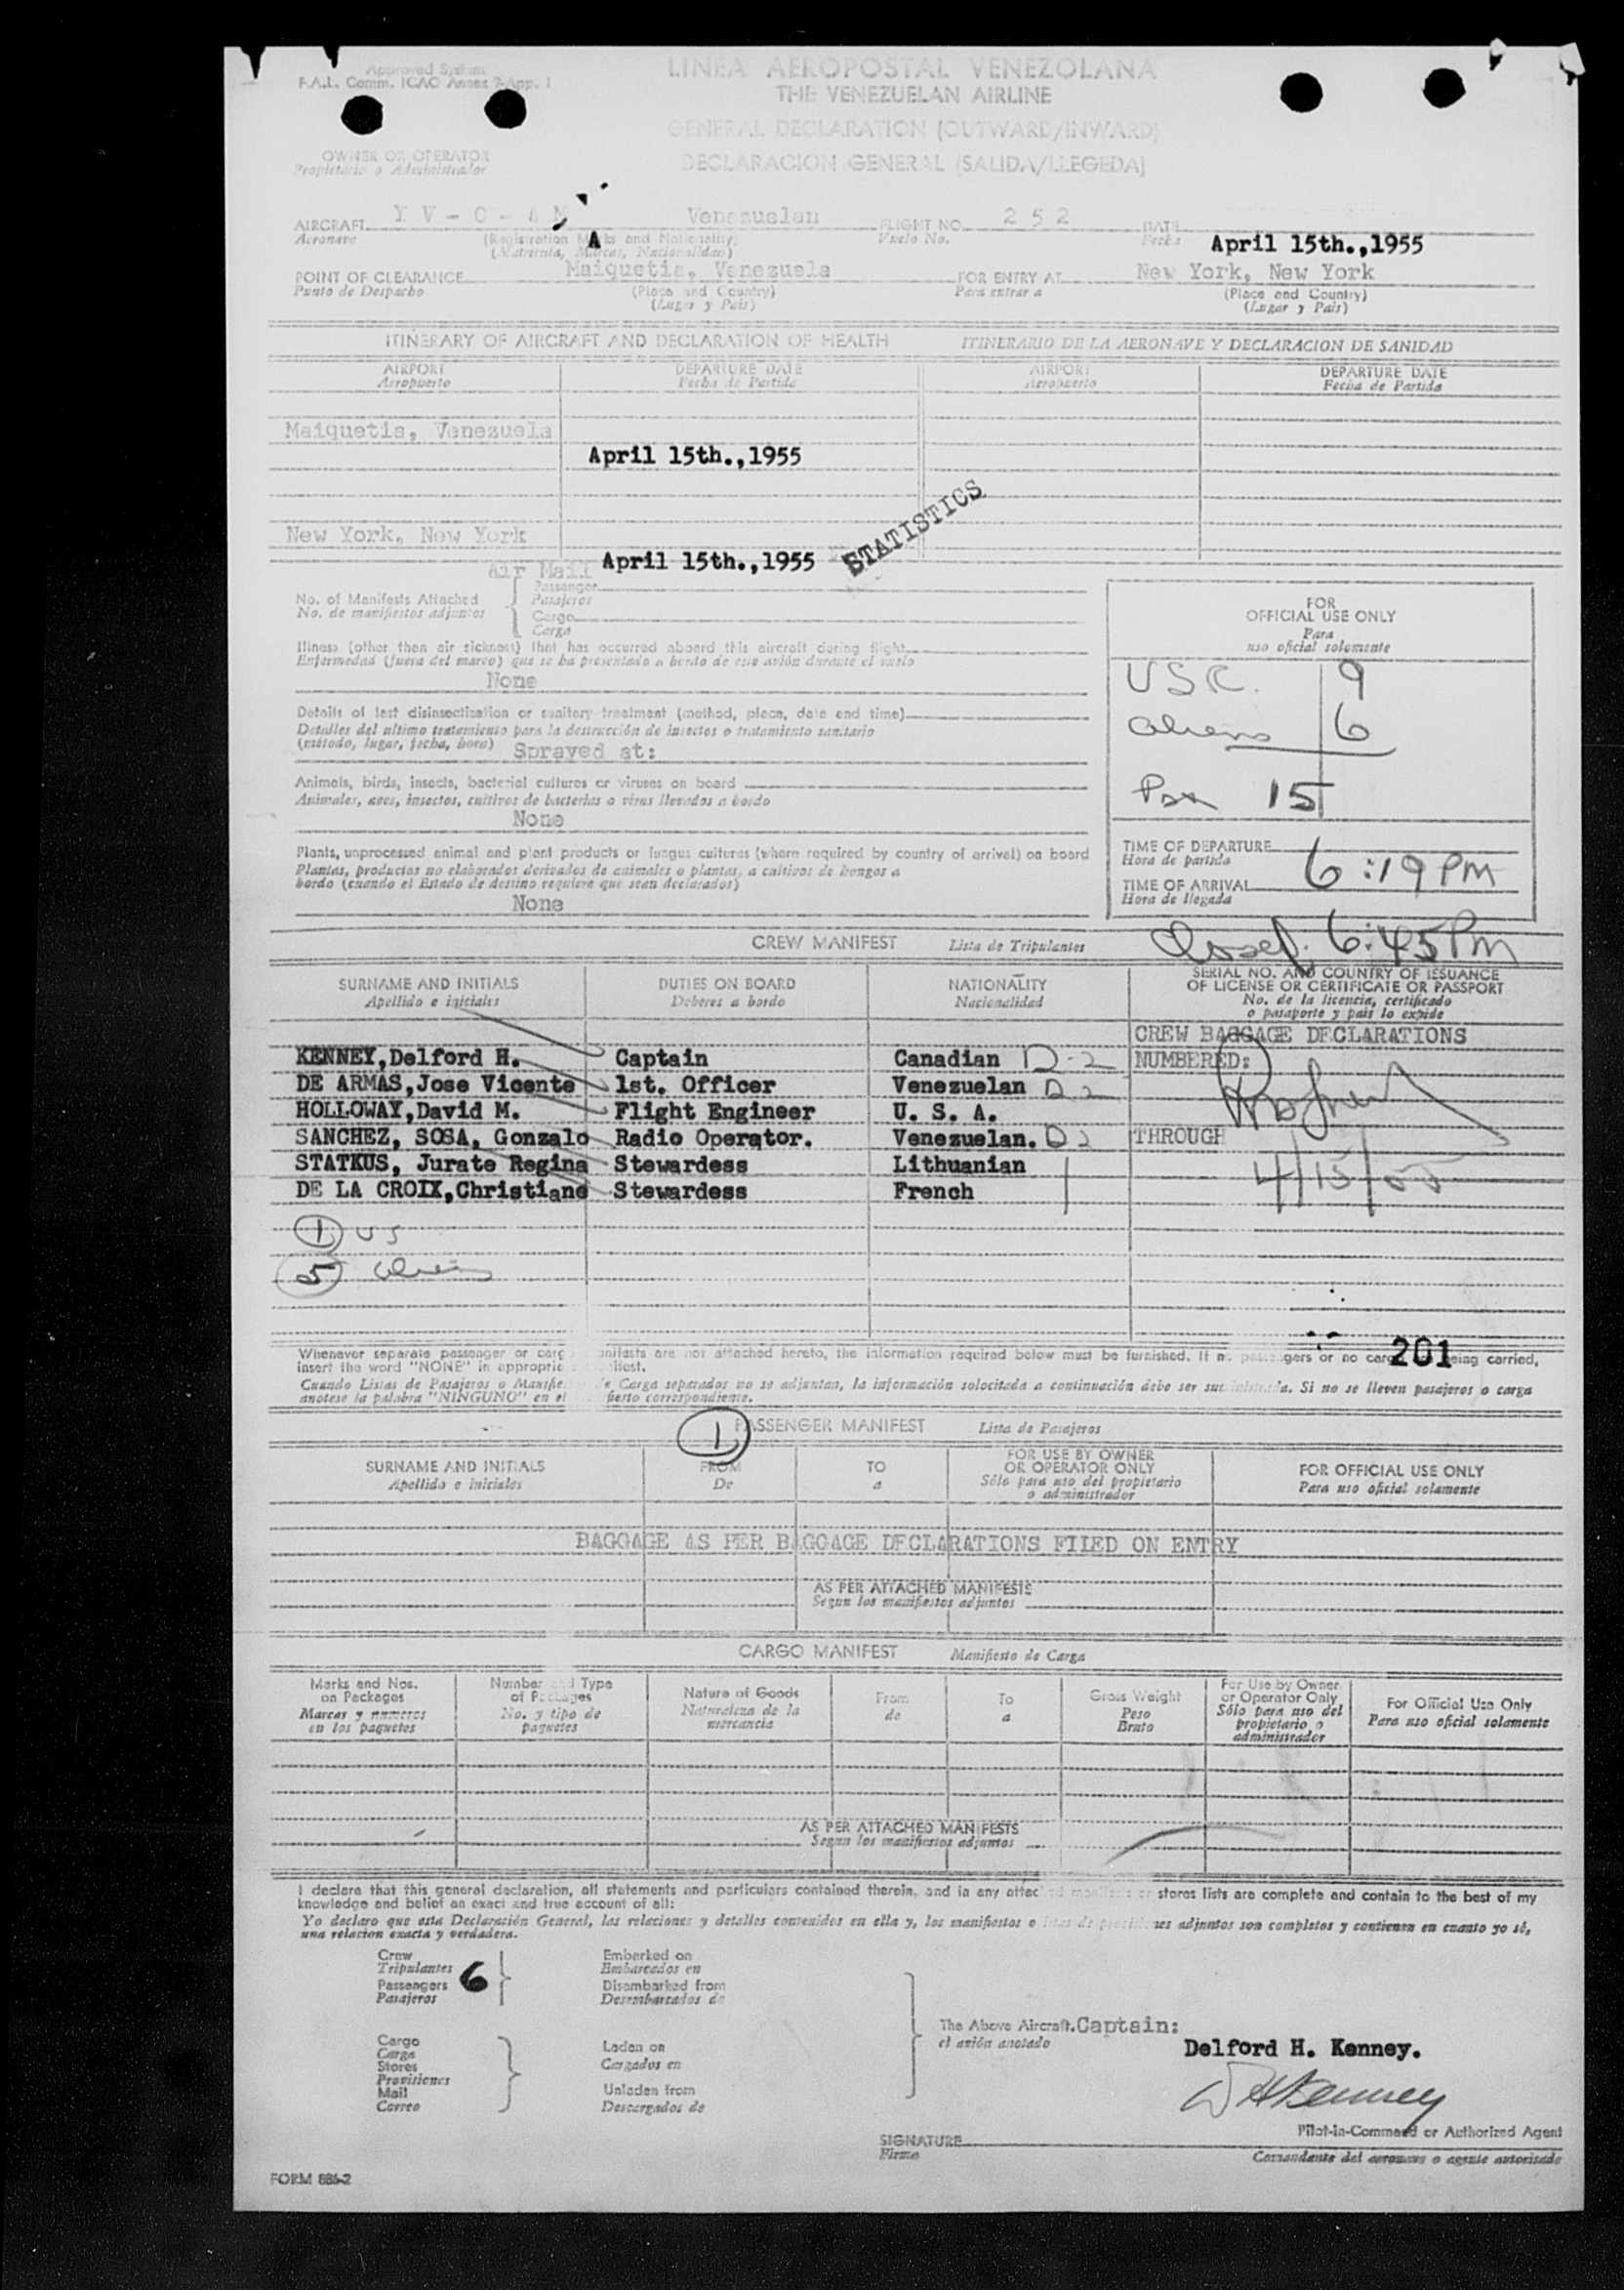 Approved System
F.A.L. Comm. ICAO Annex 9-App. 1
LINEA AEROPOSTAL VENEZOLANA
THE VENEZUELAN AIRLINE
GENERAL DECLARATION (OUTWARD/INWARD)
DECLARACION GENERAL (SALIDA/LLEGEDA)
OWNER OR OPERATOR
Propietario o Administrador
AIRCRAFT YV-C-AM Venezuelan FLIGHT NO. 252 DATE April 15th.,1955
Aeronave (Registration Marks and Nationality) Vuelo No. Fecha
A
(Matricula, Marcas, Nacionalidad)
POINT OF CLEARANCE Maiquetia, Venezuela FOR ENTRY AT New York, New York
Punto de Despacho (Place and Country) Para entrar a (Place and Country)
(Lugar y Pais) (Lugar y Pais)
ITINERARY OF AIRCRAFT AND DECLARATION OF HEALTH ITINERARIO DE LA AERONAVE Y DECLARACION DE SANIDAD
AIRPORT DEPARTURE DATE AIRPORT DEPARTURE DATE
Aeropuerto Fecha de Partida Aeropuerto Fecha de Partida
Maiquetia, Venezuela
April 15th.,1955
STATISTICS
New York, New York
April 15th.,1955
Air Mail
No. of Manifests Attached Passenger
No. de manifiestos adjuntos Pasajeros
Cargo
Carga
Illness (other than air sickness) that has occurred aboard this aircraft during flight
Enfermedad (fuera del mareo) que se ha presentado a bordo de este avión durante el vuelo
None
Details of last disinsectization or sanitary treatment (method, place, date and time)
Detalles del ultimo tratamiento para la destrucción de insectos o tratamiento sanitario
(método, lugar, fecha, hora) Sprayed at:
Animals, birds, insects, bacterial cultures or viruses on board
Animales, aves, insectos, cultivos de bacterias o virus llevados a bordo
None
Plants, unprocessed animal and plant products or fungus cultures (where required by country of arrival) on board
Plantas, productos no elaborados derivados de animales o plantas, a cultivos de hongos a
bordo (cuando el Estado de destino requiere que sean declarados)
None
FOR
OFFICIAL USE ONLY
Para
uso oficial solamente
USC. 9
Aliens 6
Pax 15
TIME OF DEPARTURE
Hora de partida
6:19 PM
TIME OF ARRIVAL
Hora de llegada
6:45 PM
CREW MANIFEST Lista de Tripulantes
SURNAME AND INITIALS DUTIES ON BOARD NATIONALITY SERIAL NO. AND COUNTRY OF ISSUANCE
OF LICENSE OR CERTIFICATE OR PASSPORT
Apellido e iniciales Deberes a bordo Nacionalidad No. de la licencia, certificado
o pasaporte y pais lo expide
CREW BAGGAGE DECLARATIONS
KENNEY,Delford H. Captain Canadian D-2 NUMBERED:
DE ARMAS,Jose Vicente 1st. Officer Venezuelan D-2
HOLLOWAY,David M. Flight Engineer U. S. A.
SANCHEZ, SOSA, Gonzalo Radio Operator. Venezuelan. D2 THROUGH
STATKUS, Jurate Regina Stewardess Lithuanian
DE LA CROIX,Christiane Stewardess French
4/15/55
1 US
5 aliens
201
Whenever separate passenger or manifests are not attached hereto, the information required below must be furnished. If or no being carried,
insert the word "NONE" in
Cuando Listas de Pasajeros o Carga separados no se adjuntan, la información solocitada a continuación debe ser Si no se lleven pasajeros o carga
anotese la palabra "NINGUNO" en el correspondiente.
1
PASSENGER MANIFEST Lista de Pasajeros
SURNAME AND INITIALS FROM TO FOR USE BY OWNER
OR OPERATOR ONLY FOR OFFICIAL USE ONLY
Apellido e iniciales De a Sólo para uso del propietario
o administrador Para uso oficial solamente
BAGGAGE AS PER BAGGAGE DECLARATIONS FILED ON ENTRY
AS PER ATTACHED MANIFESTS
Segun los manifiestos adjuntos
CARGO MANIFEST Manifiesto de Carga
Marks and Nos.
on Packages
Marcas y numeros
en los paquetes
Number and Type
of Packages
No. y tipo de
paquetes
Nature of Goods
Naturaleza de la
mercancia
From
de
To
a
Gross Weight
Peso
Bruto
For Use by Owner
or Operator Only
Sólo para uso del
propietario o
administrador
For Official Use Only
Para uso oficial solamente
AS PER ATTACHED MANIFESTS
Segun los manifiestos adjuntos
I declare that this general declaration, all statements and particulars contained therein, and in any stores lists are complete and contain to the best of my
knowledge and belief an exact and true account of all:
Yo declaro que esta Declaración General, las relaciones y detalles contenidos en ella y, los manifiestos o adjuntos son completos y contienen en cuanto yo sé,
una relacion exacta y verdadera.
Crew
Tripulantes
Passengers 6
Pasajeros
Embarked on
Embarcados en
Disembarked from
Desembarcados de
Cargo
Carga
Stores
Provisiones
Mail
Correo
Laden on
Cargados en
Unladen from
Descargados de
The Above Aircraft. Captain:
el avión anotado
Delford H. Kenney.
D H Kenney
Pilot-in-Command or Authorized Agent
SIGNATURE
Firma
Comandante del aeronave o agente autorizado
FORM 886-2